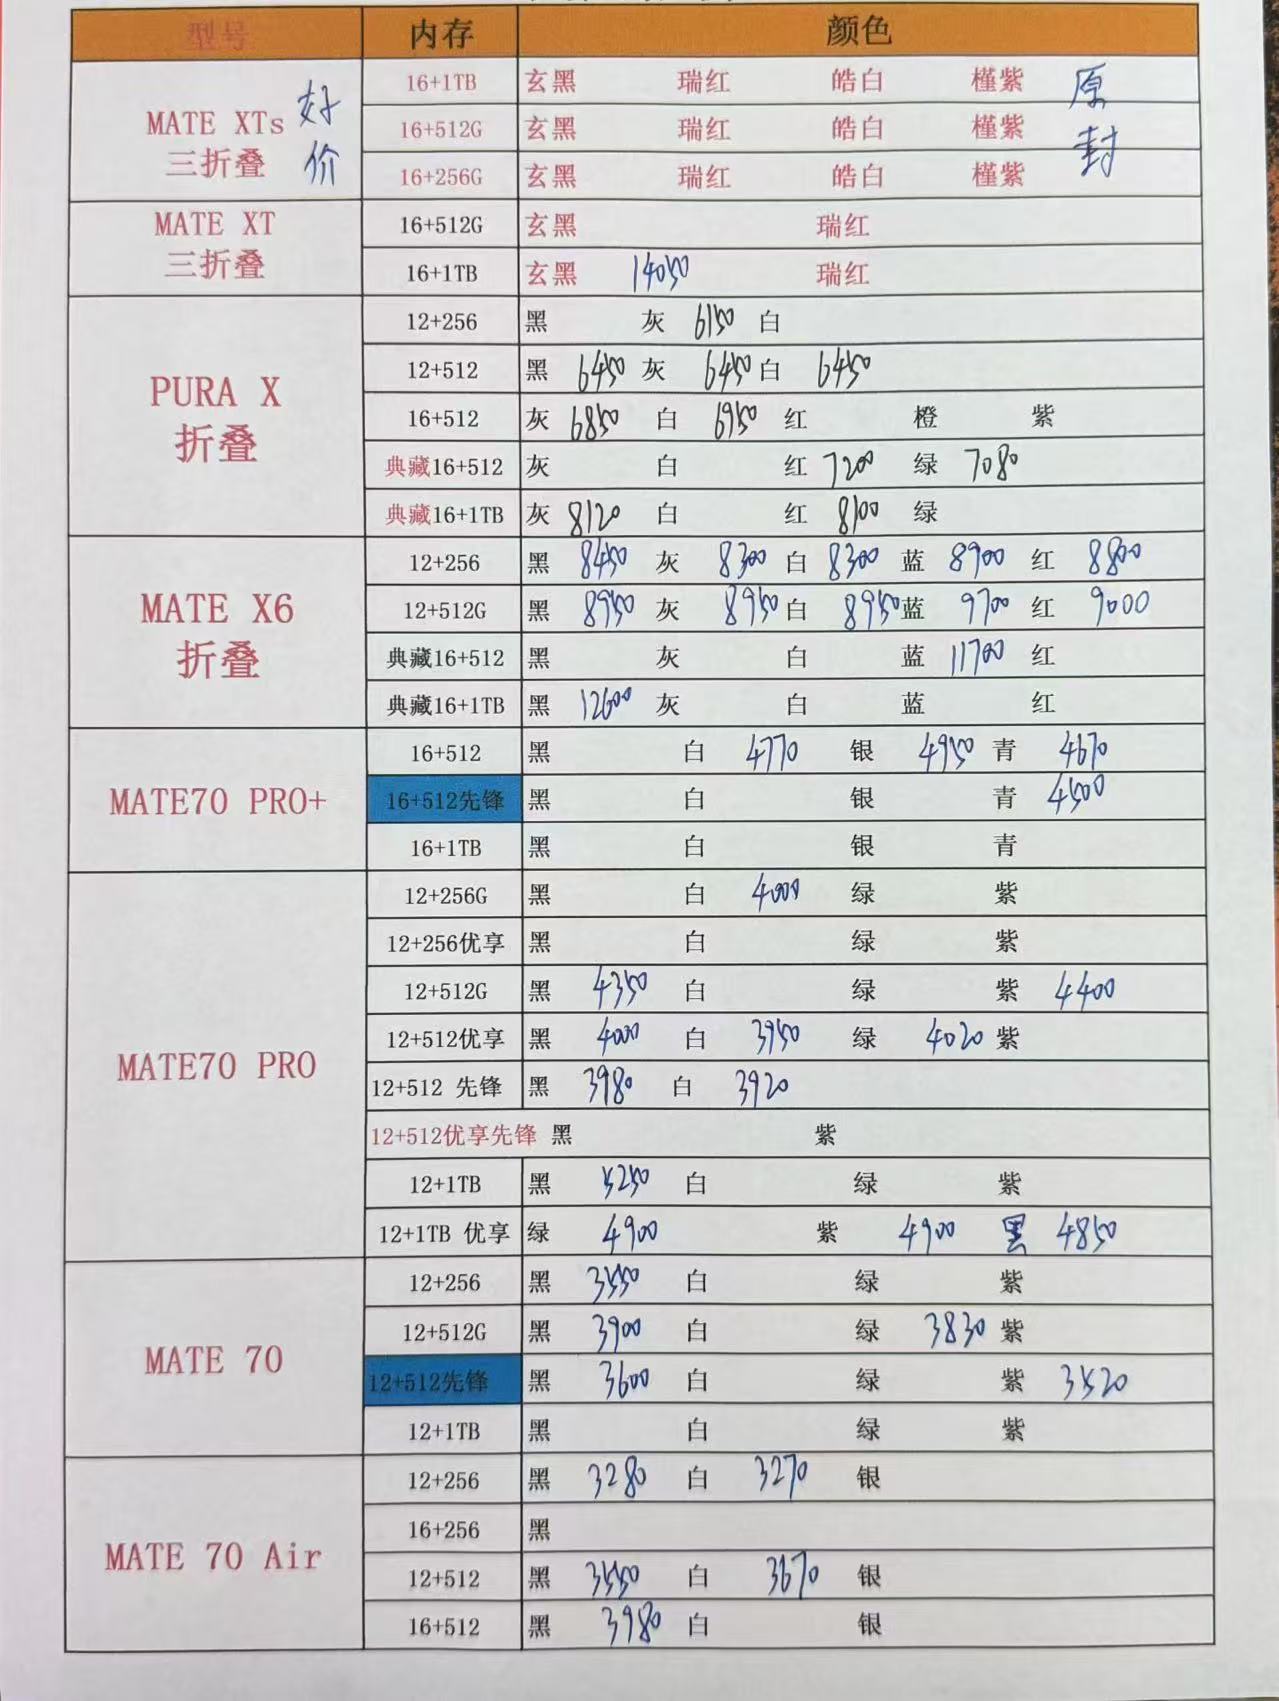 型号 内存 颜色
MATE XTs 三折叠 好价 16+1TB 玄黑 瑞红 皓白 槿紫 原封
16+512G 玄黑 瑞红 皓白 槿紫
16+256G 玄黑 瑞红 皓白 槿紫
MATE XT 三折叠 16+512G 玄黑 瑞红
16+1TB 玄黑 14050 瑞红
PURA X 折叠 12+256 黑 灰 6150 白
12+512 黑 6450 灰 6450 白 6450
16+512 灰 6850 白 6950 红 橙 紫
典藏16+512 灰 白 红 7200 绿 7080
典藏16+1TB 灰 8120 白 红 8100 绿
MATE X6 折叠 12+256 黑 8450 灰 8300 白 8300 蓝 8900 红 8800
12+512G 黑 8950 灰 8950 白 8950 蓝 9700 红 9000
典藏16+512 黑 灰 白 蓝 11700 红
典藏16+1TB 黑 12600 灰 白 蓝 红
MATE70 PRO+ 16+512 黑 白 4770 银 4950 青 4670
16+512先锋 黑 白 银 青 4500
16+1TB 黑 白 银 青
MATE70 PRO 12+256G 黑 白 4000 绿 紫
12+256优享 黑 白 绿 紫
12+512G 黑 4350 白 绿 紫 4400
12+512优享 黑 4000 白 3950 绿 4020 紫
12+512 先锋 黑 3980 白 3920
12+512优享先锋 黑 紫
12+1TB 黑 5250 白 绿 紫
12+1TB 优享 绿 4900 紫 4900 黑 4850
MATE 70 12+256 黑 3550 白 绿 紫
12+512G 黑 3900 白 绿 3830 紫
12+512先锋 黑 3600 白 绿 紫 3520
12+1TB 黑 白 绿 紫
MATE 70 Air 12+256 黑 3280 白 3270 银
16+256 黑
12+512 黑 3550 白 3670 银
16+512 黑 3980 白 银